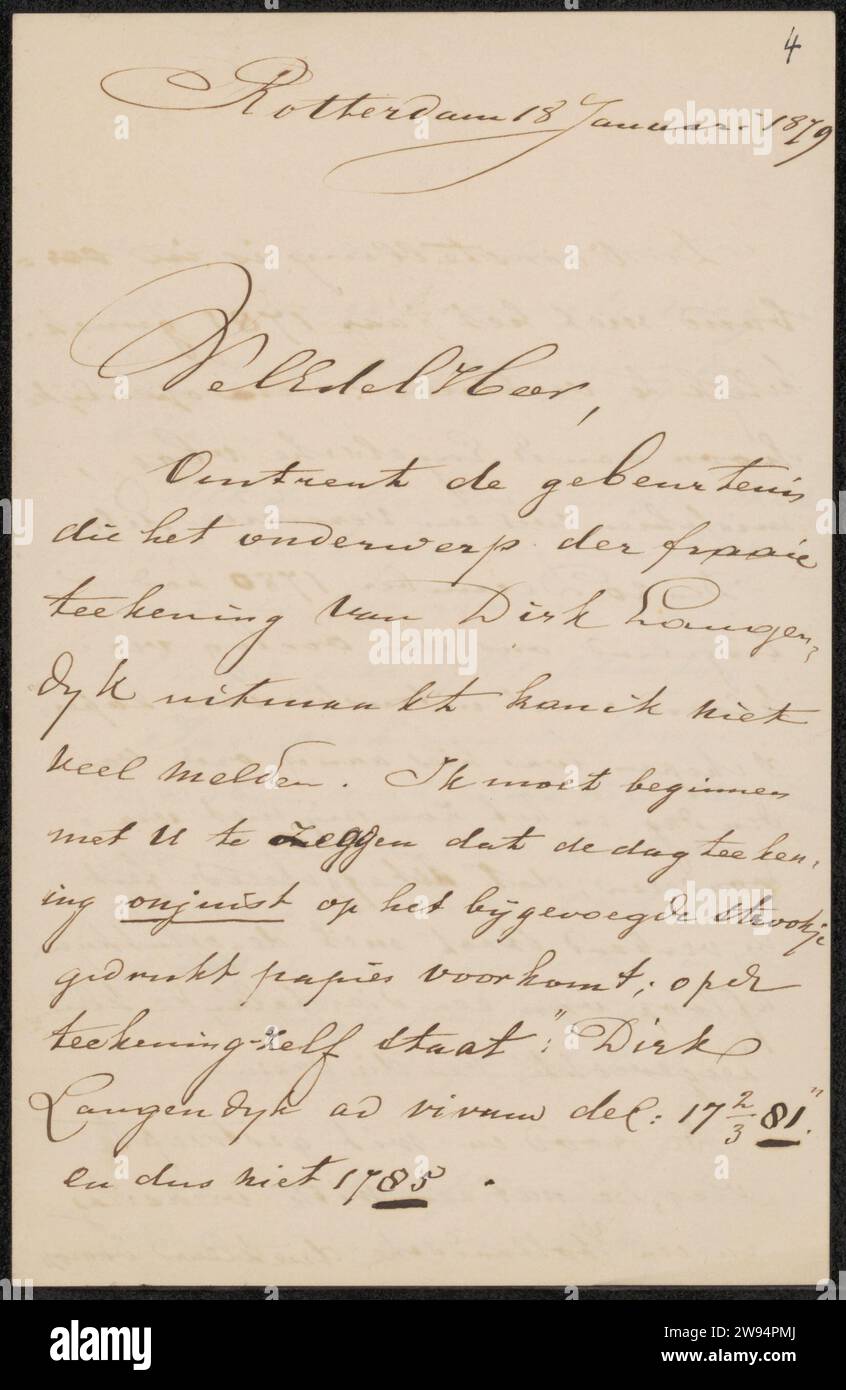 4
Rotterdam 18 Januari 1879
WelEdelHeer,
Omtrent de gebeurtenis
die het onderwerp der fraaie
teekening van Dirk Langen„
dyk uitmaakt kan ik niet
veel melden. Ik moet beginnen
met U te zeggen dat de dagteeken„
ing onjuist op het bijgevoegde strookje
gedrukt papier voorkomt; op de
teekening-zelf staat": Dirk
Langendyk ad vivum del: 17 2/3 81".
en dus niet 1785.
alamy
Image ID: 2W94PMJ
www.alamy.com